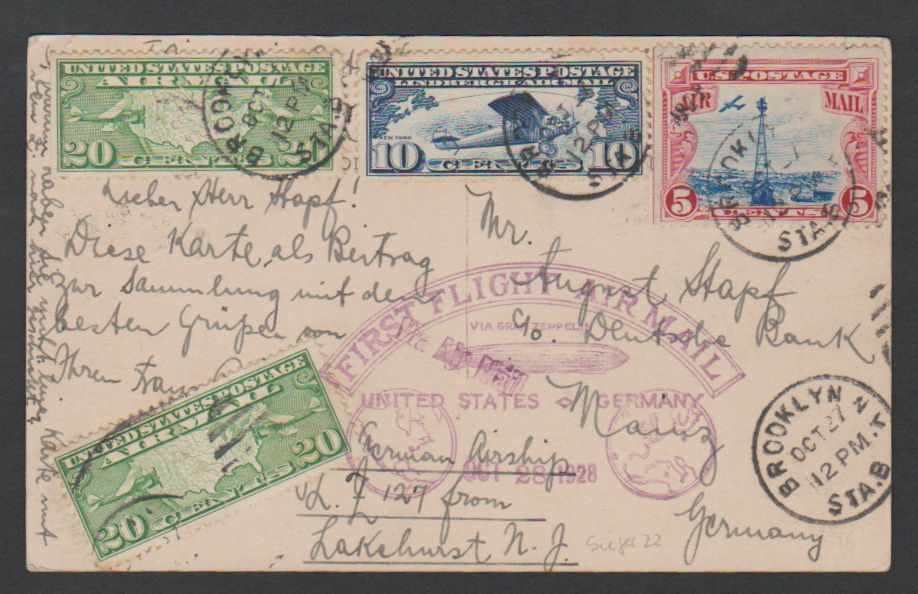 UNITED STATES POSTAGE
AIR MAIL
20 CENTS 20
UNITED STATES POSTAGE
LINDBERGH AIR MAIL
NEW YORK
10 CENTS 10
U.S. POSTAGE
AIR MAIL
5 CENTS 5
BROOKLYN
OCT
12 PM
STA.B
Lieber Herr Stapf!
Diese Karte als Beitrag
zur Sammlung mit den
besten Grüßen von
Ihrem
Mr.
August Stapf
c/o. Deutsche Bank
Mainz
Germany
FIRST FLIGHT AIR MAIL
VIA GRAF ZEPPELIN
UNITED STATES GERMANY
OCT 28 1928
German Airship
L Z 127 from
Lakehurst N. J.
UNITED STATES POSTAGE
AIR MAIL
20 CENTS 20
BROOKLYN N.Y.
OCT 27
12 PM.
STA.B
Sieger 22